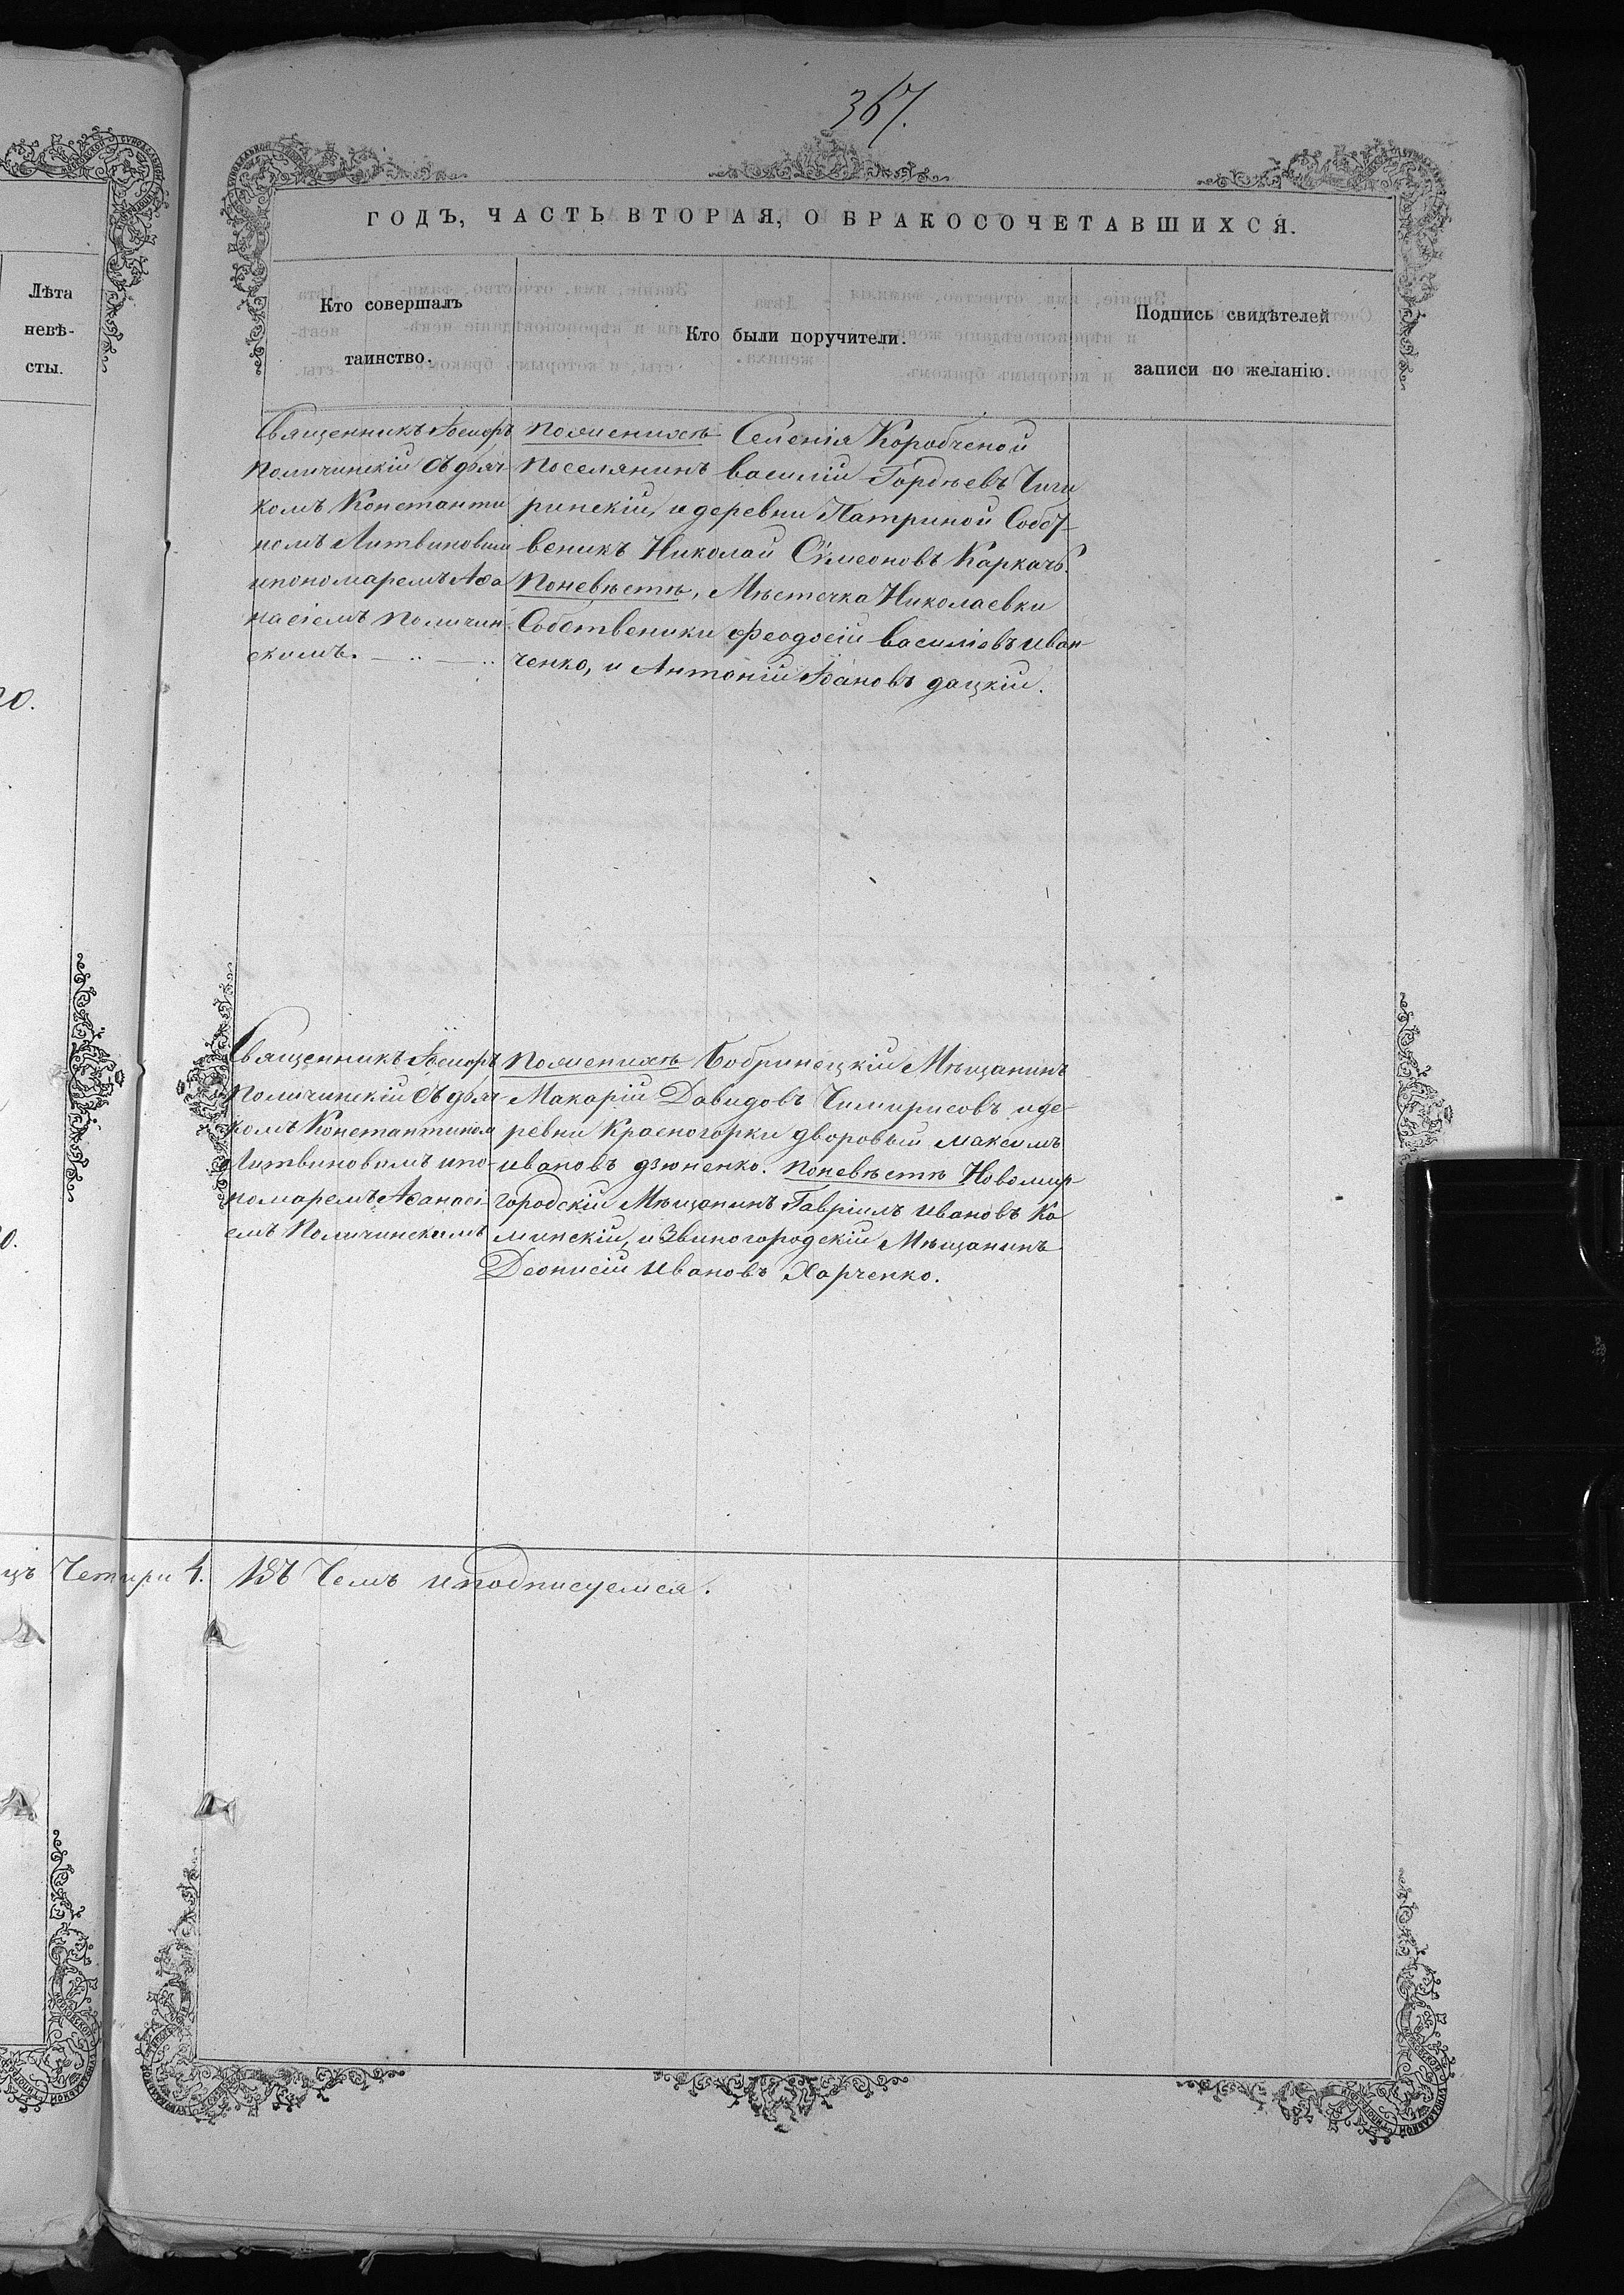 367.
ГОДЪ, ЧАСТЬ ВТОРАЯ, О БРАКОСОЧЕТАВШИХСЯ.
Лѣта
невѣ-
сты.
Кто совершалъ
таинство.
Кто были поручители.
Подпись свидѣтелей
записи по желанію.
Священникъ
Поличинскій Съ дья-
комъ Константи
номъ Литвиновымъ
ипономаремъ Аѳа
насіемъ Поличин-
скимъ.
Поженихѣ Селенія Коробченой
поселянинъ василій Гордѣевъ Чиги
ринскій, и деревни Патриной Собст-
веникъ Николай Сѵмеоновъ Каркачъ.
Поневѣстѣ, Мѣстечка Николаевки
Собственики Феодосій василіовъ иван-
ченко, и Антоній Іоановъ дацкій.
Священникъ
Поличинскій Съ дья-
комъ Константиномъ
Литвиновымъ ипо-
номаремъ Аѳанасі-
емъ Поличинскимъ
Поженихѣ Бобринецкій Мѣщанинъ
Макарій Давидовъ Чимирисовъ иде-
ревни Красногорки дворовый максимъ
ивановъ дзюненко. поневѣстѣ Новомир-
городскій Мѣщанинъ Гавріилъ ивановъ Ка
минскій, и Звиногородскій Мѣщанинъ
Деонисій ивановъ Харченко.
Четыри 4. Въ Чемъ иподписуемся.